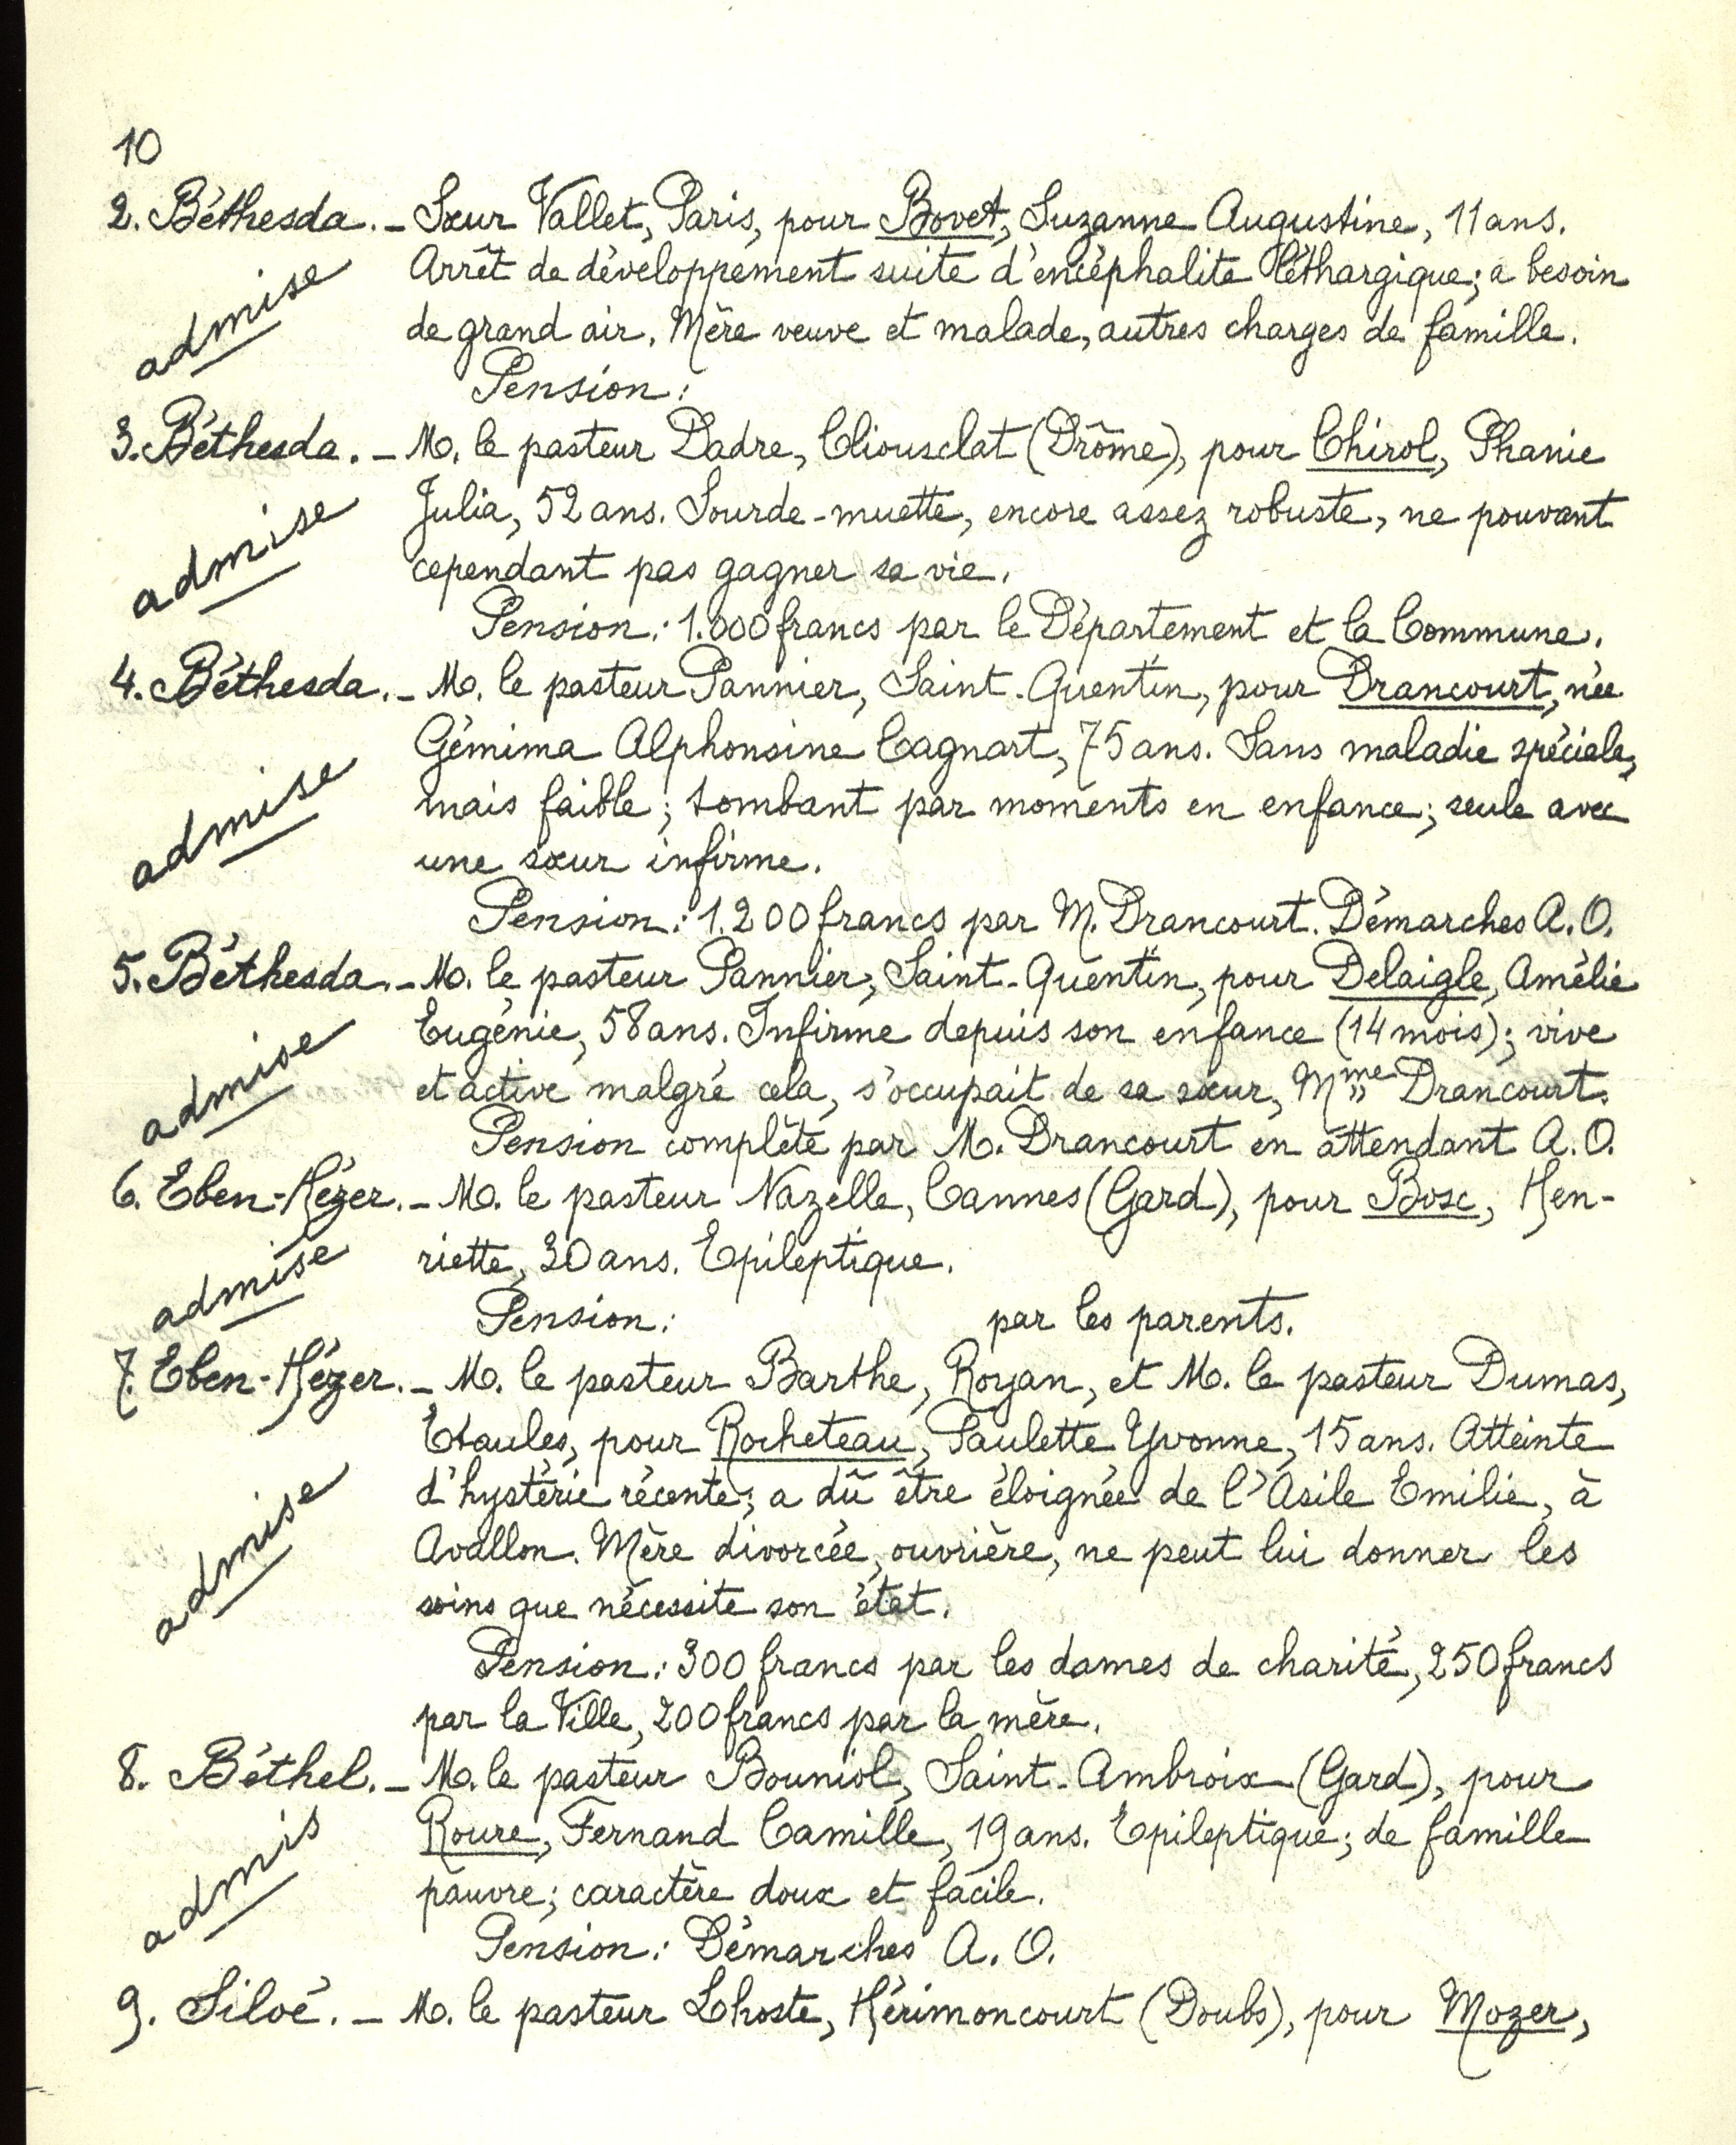 10
2. Béthesda. - Sœur Vallet, Paris, pour Bovet, Suzanne Augustine, 11 ans.
Arrêt de développement suite d'encéphalite léthargique; a besoin
admise
de grand air. Mère veuve et malade, autres charges de famille.
Pension:
3. Béthesda. - M. le pasteur Ladre, Cliousclat (Drôme), pour Chirol, Phanie
Julia, 52 ans. Sourde-muette, encore assez robuste, ne pouvant
admise
cependant pas gagner sa vie.
Pension: 1.000 francs par le Département et la Commune.
4. Béthesda. - M. le pasteur Pannier, Saint-Quentin, pour Drancourt, née
Gémima Alphonsine Cagnart, 75 ans. Sans maladie spéciale,
admise
mais faible; tombant par moments en enfance; seule avec
une sœur infirme.
Pension: 1.200 francs par M. Drancourt. Démarches A.O.
5. Béthesda. - M. le pasteur Pannier, Saint-Quentin, pour Delaigle, Amélie
Eugénie, 58 ans. Infirme depuis son enfance (14 mois); vive
admise
et active malgré cela, s'occupait de sa sœur, Mme Drancourt.
Pension complète par M. Drancourt en attendant A.O.
6. Eben-Hézer. - M. le pasteur Nazelle, Cannes (Gard), pour Bosc, Hen-
admise
riette, 30 ans. Epileptique.
Pension: par les parents.
7. Eben-Hézer. - M. le pasteur Barthe, Royan, et M. le pasteur Dumas,
Etaules, pour Rocheteau, Paulette Yvonne, 15 ans. Atteinte
d'hystérie récente; a dû être éloignée de l'Asile Emilie, à
admise
Avallon. Mère divorcée, ouvrière, ne peut lui donner les
soins que nécessite son état.
Pension: 300 francs par les dames de charité, 250 francs
par la Ville, 200 francs par la mère.
8. Béthel. - M. le pasteur Bouniol, Saint-Ambroix (Gard), pour
Roure, Fernand Camille, 19 ans. Epileptique; de famille
admis
pauvre; caractère doux et facile.
Pension: Démarches A.O.
9. Siloé. - M. le pasteur Lhoste, Hérimoncourt (Doubs), pour Mozer,